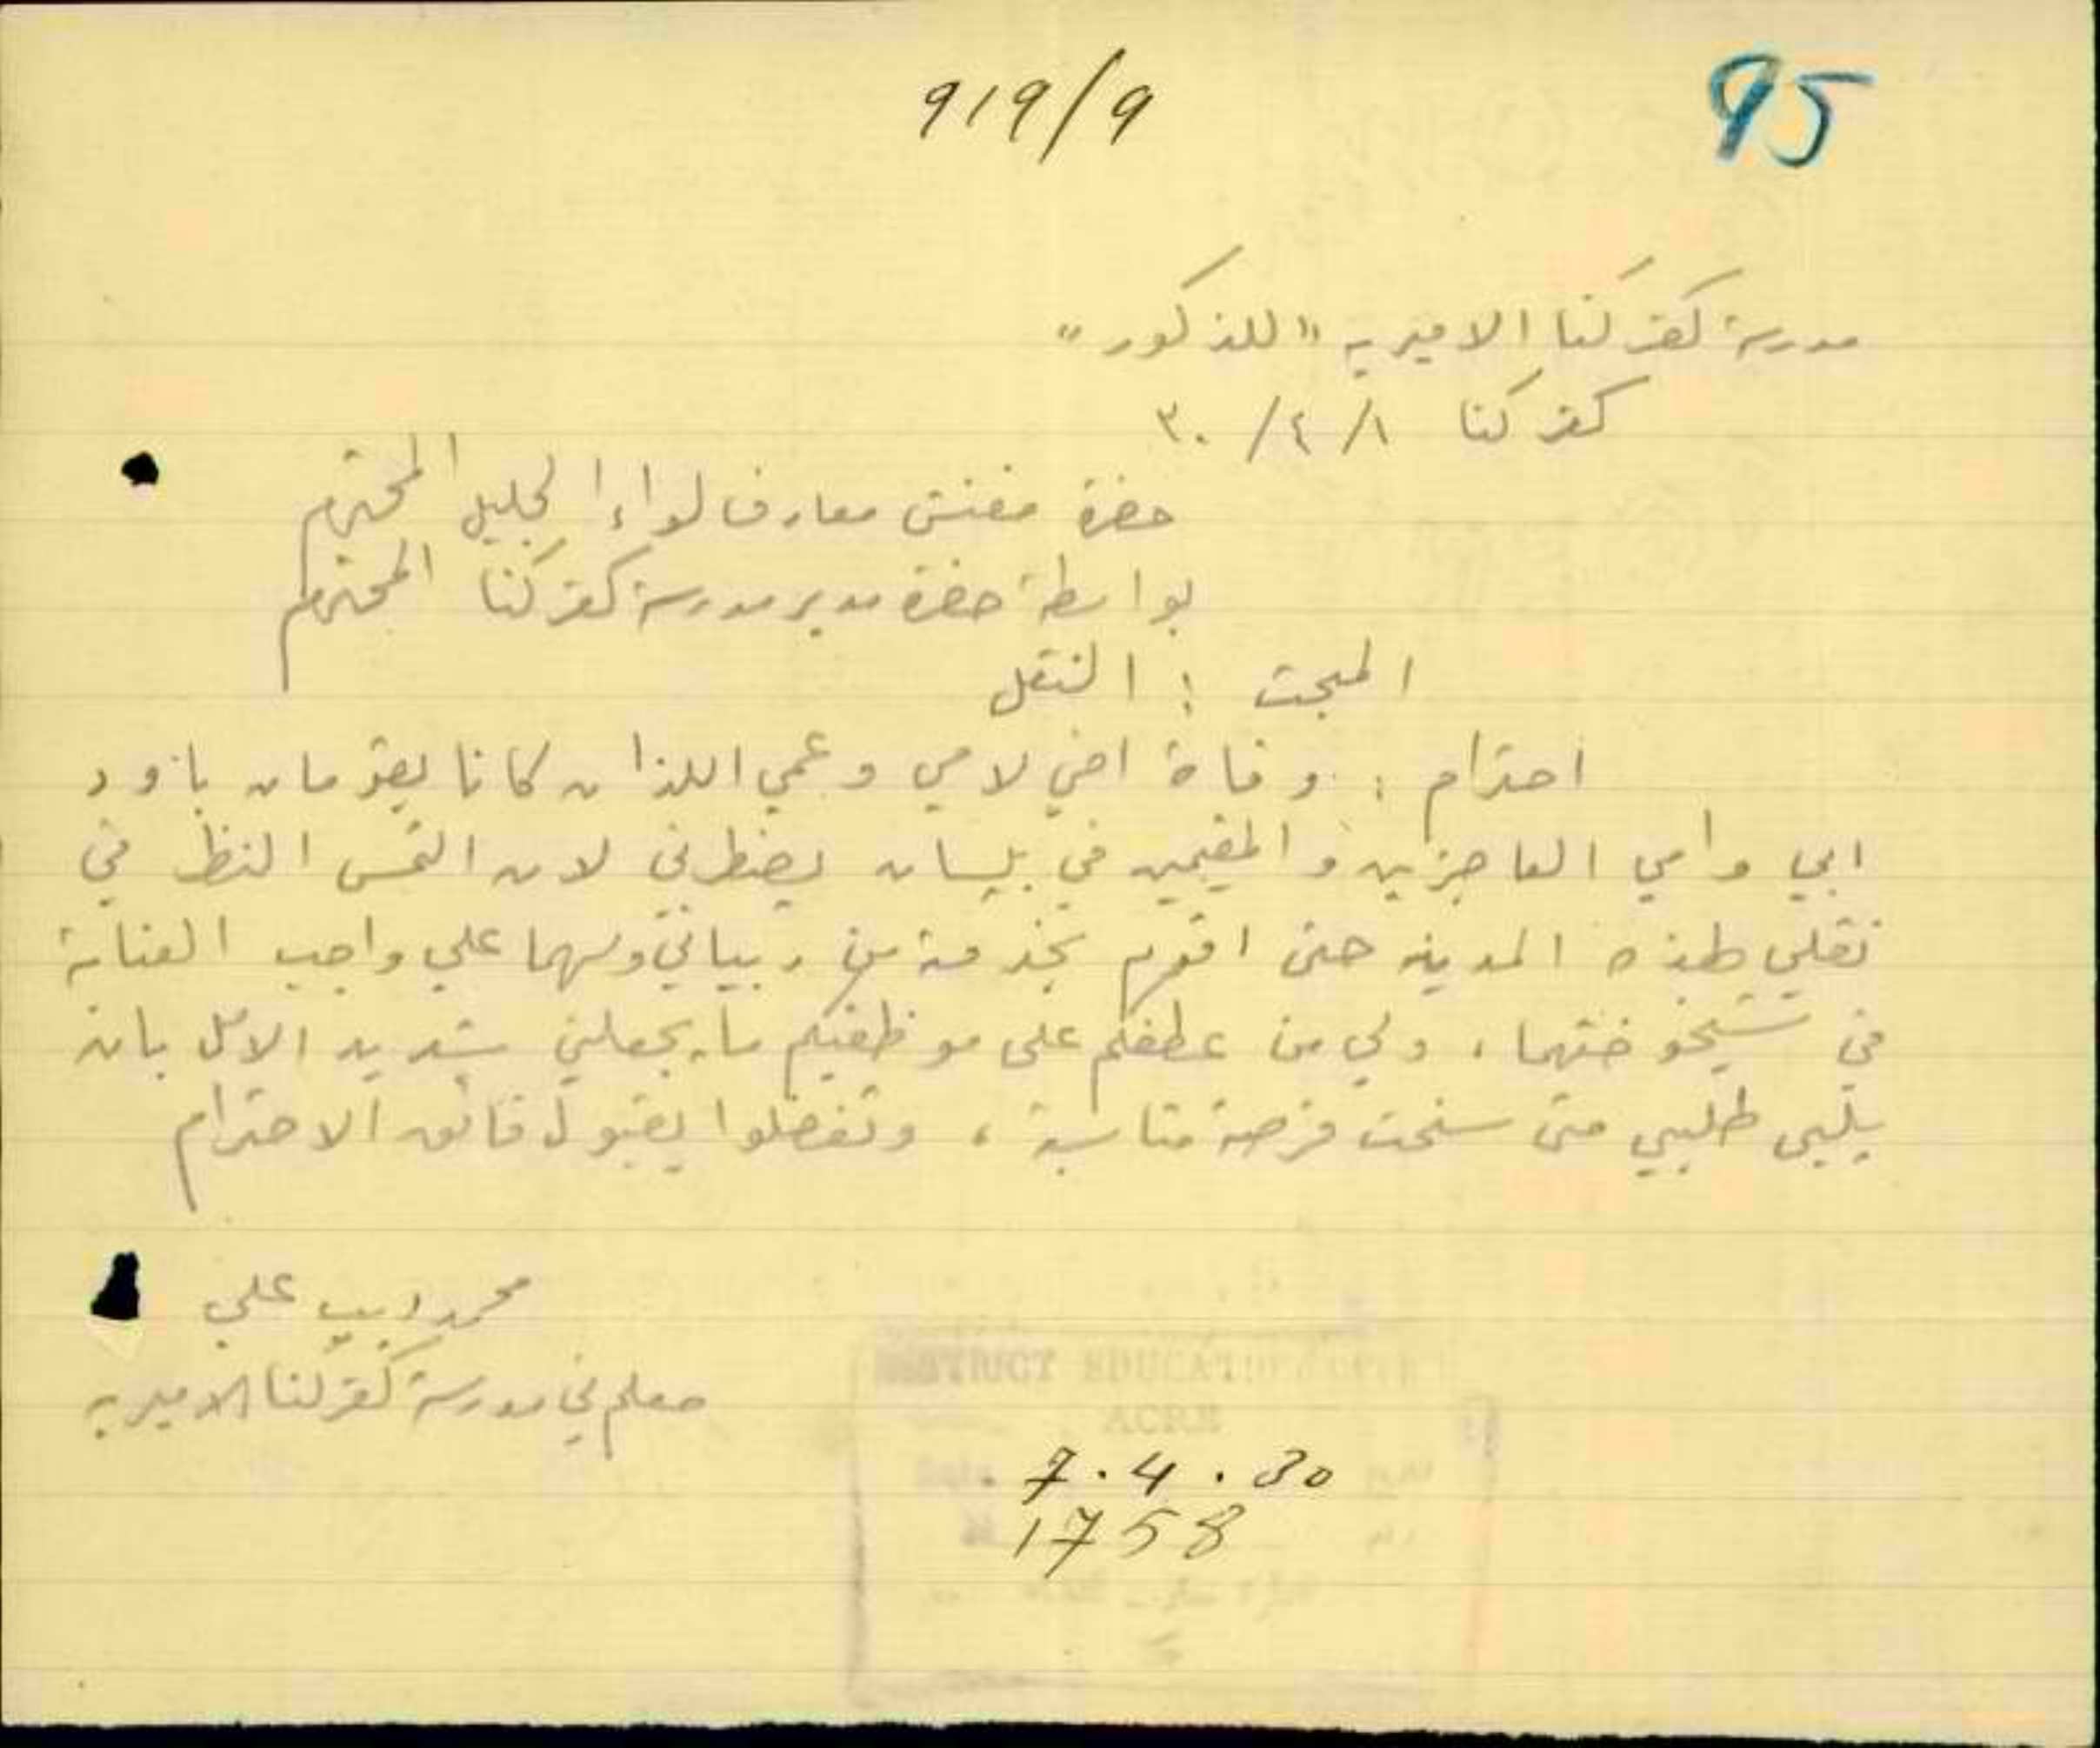 919/9
95
مدرسة كفركنا الاميريه "للذكور"
كفركنا ٣٠/٤/١
حضرة مفتش معارف لواء الجليل المحترم
بواسطة حضرة مدير مدرسة كفركنا المحترم
المبحث : النقل
احترام : وفاة اخي لامي وعمي اللذان كانا يقومان باود
ابي وامي العاجزين والمقيمين في بيسان يضطرني لان التمس النظر في
نقلي لهذه المدينه حتى اقوم بخدمة من ربياني ولهما علي واجب العناية
في شيخوختهما، ولي من عطفكم على موظفيكم ما يجعلني شديد الامل بان
يلبى طلبي متى سنحت فرصة مناسبة، وتفضلوا بقبول فائق الاحترام
محمد اديب علي
معلم في مدرسة كفركنا الاميريه
DISTRICT EDUCATION OFFICE
ACRE
7.4.30
1758